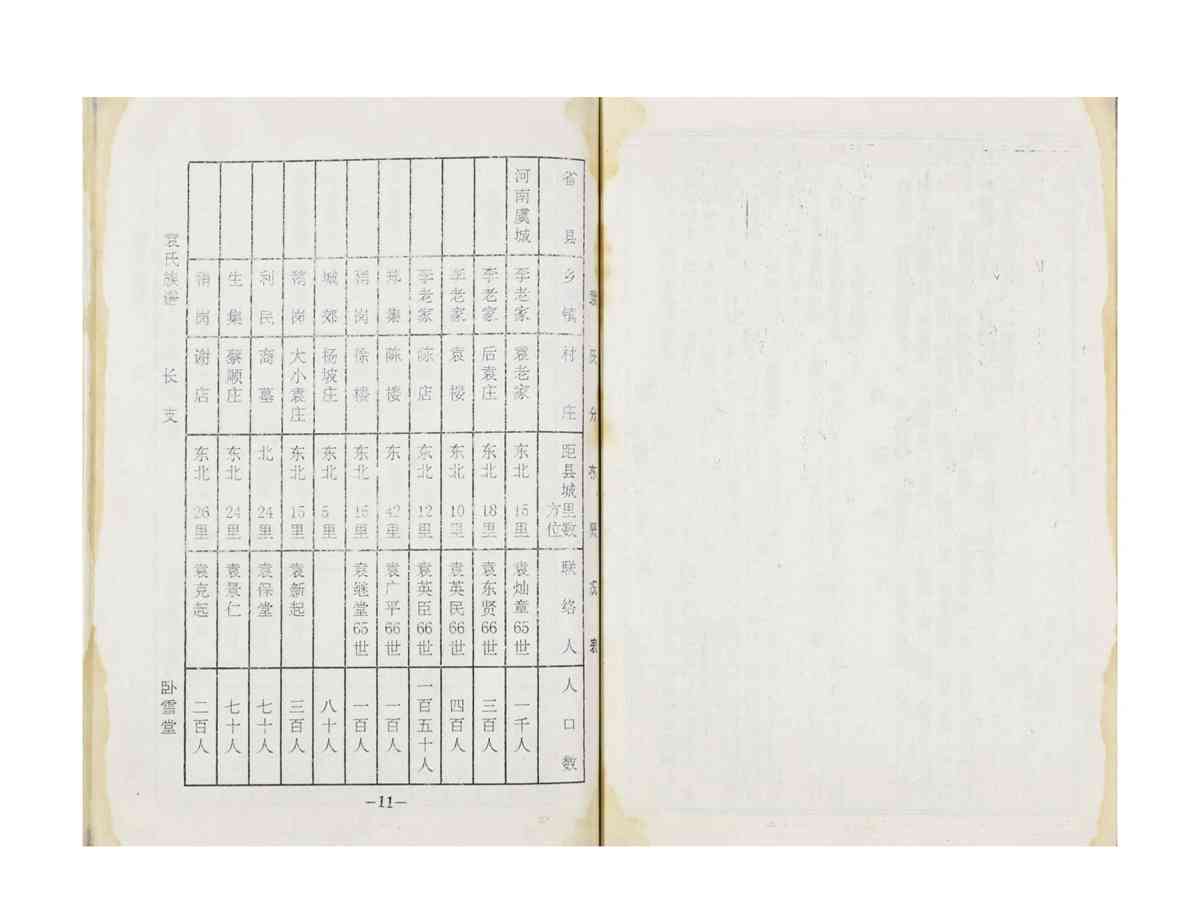 省县 乡镇 村庄 距县城里数方位 联络人 人口数
河南虞城 李老家 袁老家 东北 15里 袁灿童65世 一千人
李老家 后袁庄 东北 18里 袁东贤66世 三百人
李老家 袁楼 东北 10里 袁英民66世 四百人
李老家 陈店 东北 12里 袁英臣66世 一百五十人
郑集 陈楼 东 42里 袁广平66世 一百人
稍岗 徐楼 东北 15里 袁继堂65世 一百人
城郊 杨坡庄 东北 5里 八十人
稍岗 大小袁庄 东北 15里 袁新起 三百人
利民 裔墓 北 24里 袁保堂 七十人
生集 蔡顺庄 东北 24里 袁景仁 七十人
稍岗 谢店 东北 26里 袁克起 二百人
袁氏族谱 长支 卧雪堂
—11—